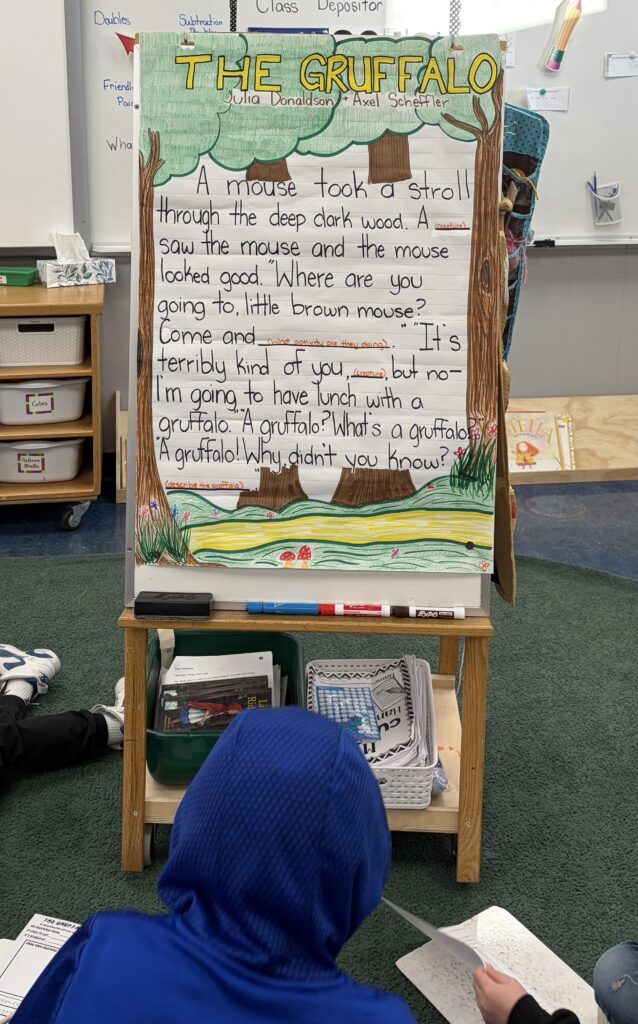 Doubles
Subtraction
Class Depositor
Friendly
Pair
THE GRUFFALO
Julia Donaldson + Axel Scheffler
A mouse took a stroll
through the deep dark wood. A (creature)
saw the mouse and the mouse
looked good. "Where are you
going to, little brown mouse?
Come and (what activity are they doing)." "It's
terribly kind of you, (creature), but no-
I'm going to have lunch with a
gruffalo." "A gruffalo? What's a gruffalo?
"A gruffalo! Why, didn't you know?
(describe the gruffalo)"
Cubes
Pattern
Blocks
EXPO
EXPO
THE GRUFFALO